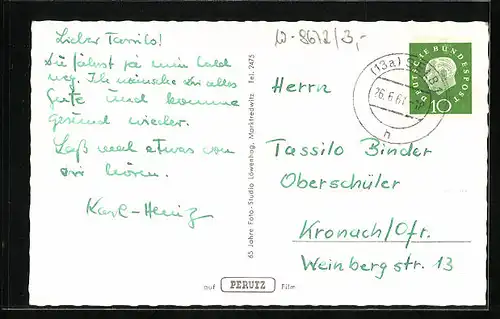 W-8672/3,-
Lieber Tassilo!
Du fährst ja nun bald
weg. Ich wünsche Dir alles
Gute und komme
gesund wieder.
Laß mal etwas von
dir hören.
Karl-Heinz
65 Jahre Foto-Studio Löwenhag, Marktredwitz Tel. 2475
auf PERUTZ Film
DEUTSCHE BUNDESPOST
10
(13a)
26.6.61
h
Herrn
Tassilo Binder
Oberschüler
Kronach/Ofr.
Weinbergstr. 13